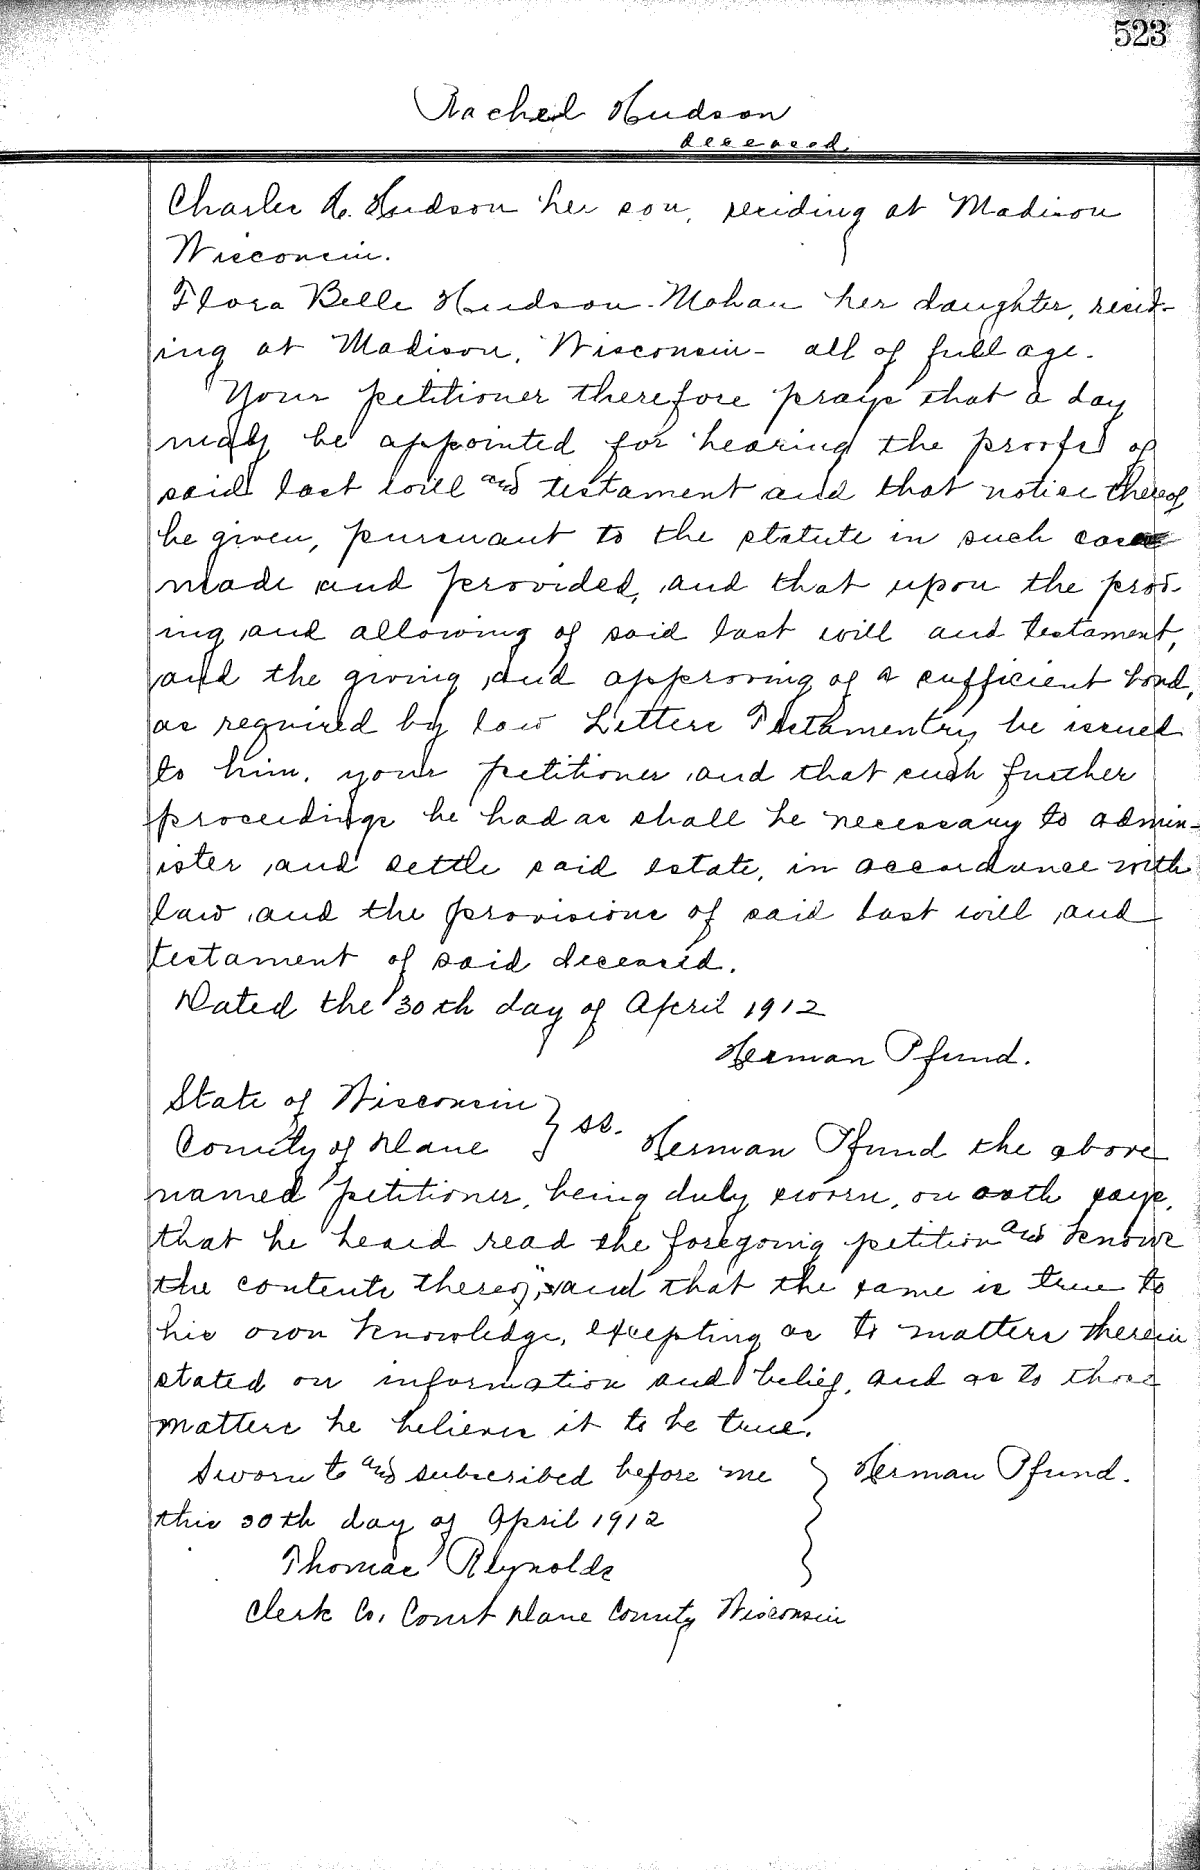 523
Rachel Hudson
deceased.
Charles A. Hudson her son, residing at Madison
Wisconsin.
Flora Belle Hudson-Mohan her daughter, resid-
ing at Madison, Wisconsin - all of full age.
Your petitioner therefore prays that a day
may be appointed for hearing the proofs of
said last will and testament and that notice thereof
be given, pursuant to the statute in such case
made and provided, and that upon the prov-
ing and allowing of said last will and testament,
and the giving and approving of a sufficient bond,
as required by law Letters Testamentry be issued
to him, your petitioner and that such further
proceedings be had as shall be necessary to admin-
ister and settle said estate, in accordance with
law and the provisions of said last will and
testament of said deceased.
Dated the 30th day of April 1912
Herman Pfund.
State of Wisconsin } ss.
County of Dane Herman Pfund the above
named petitioner, being duly sworn, on oath says,
that he heard read the foregoing petition and knows
the contents thereof, and that the same is true to
his own knowledge, excepting as to matters therein
stated on information and belief, and as to those
matters he believes it to be true.
Sworn to and subscribed before me } Herman Pfund.
this 30th day of April 1912
Thomas Reynolds
Clerk Co. Court Dane County Wisconsin